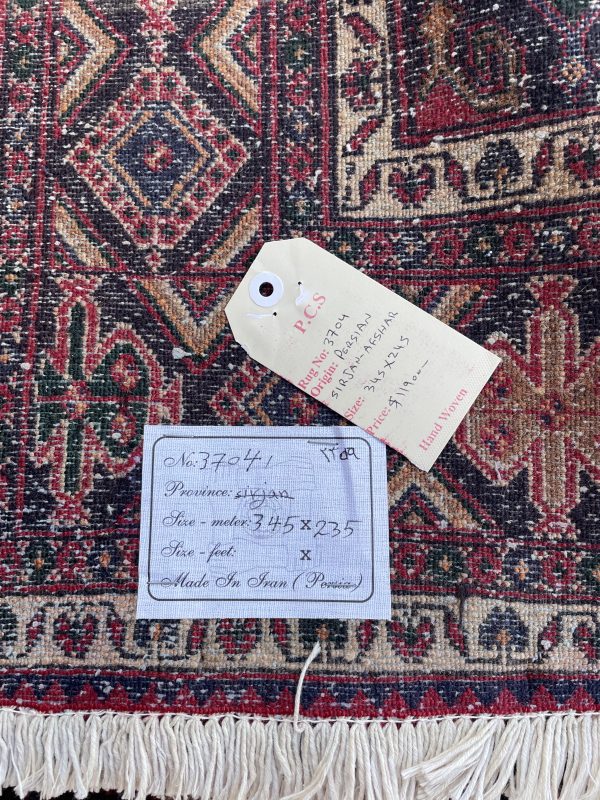 P.C.S
Rug No: 3704
Origin: PERSIAN
SIRJAN-AFSHAR
Size: 345 X 245
Price: $11900—
Hand Woven
No: 37041
۲۳۵۹
Province: sirjan
Size - meter: 345 x 235
Size - feet: x
Made In Iran ( Persia )